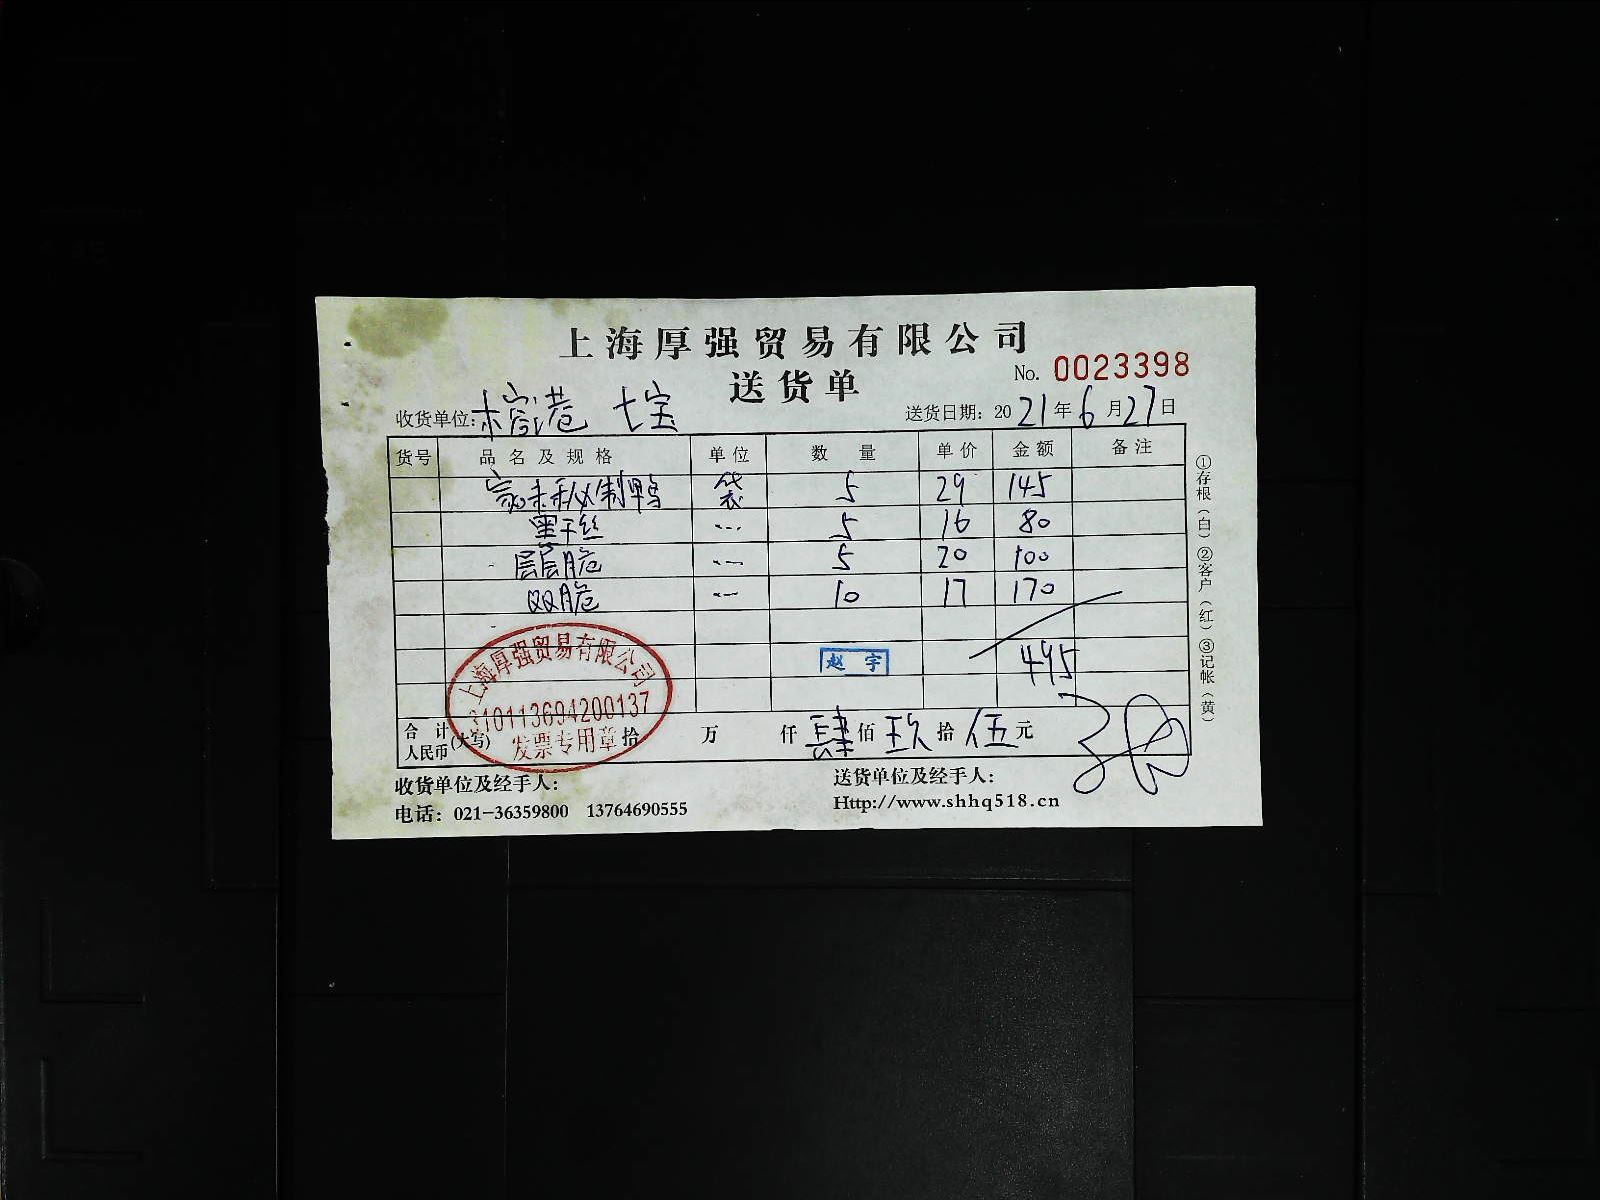 上海厚强贸易有限公司
送货单
No. 0023398
收货单位: 港 七宝
送货日期: 2021年6月27日
货号 品名及规格 单位 数量 单价 金额 备注
家味秘制鸭 袋 5 29 145
黑干丝 --- 5 16 80
层层脆 --- 5 20 100
双脆 --- 10 17 170
赵宇 495
上海厚强贸易有限公司
310113694200137
发票专用章
合计人民币(大写) 拾 万 仟 肆 佰 玖 拾 伍 元
收货单位及经手人:
送货单位及经手人:
电话: 021-36359800 13764690555
Http://www.shhq518.cn
①存根(白)②客户(红)③记帐(黄)